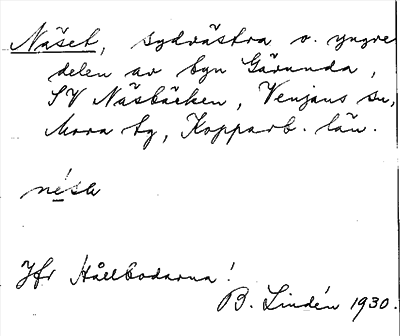 Näset, sydvästra o. yngre
delen av byn Gävunda,
SV Näsbäcken, Venjans sn,
Mora tg, Kopparb. län.
Jfr Hållbodarna!
B. Lindén 1930.